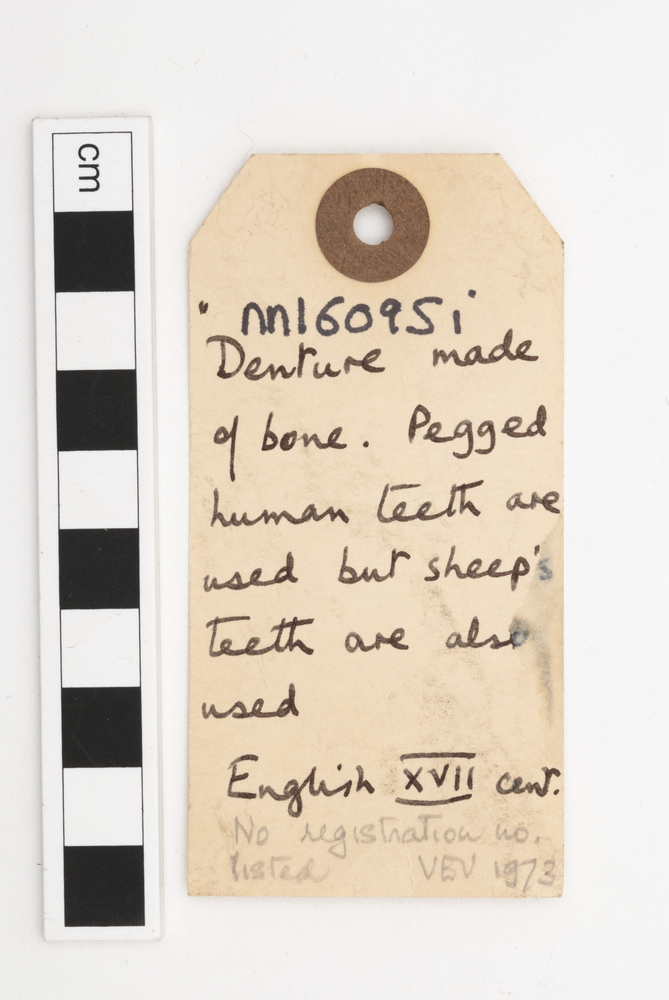 cm
" M16095i
Denture made
of bone. Pegged
human teeth are
used but sheep's
teeth are also
used
English XVII cent.
No registration no.
listed VBV 1973